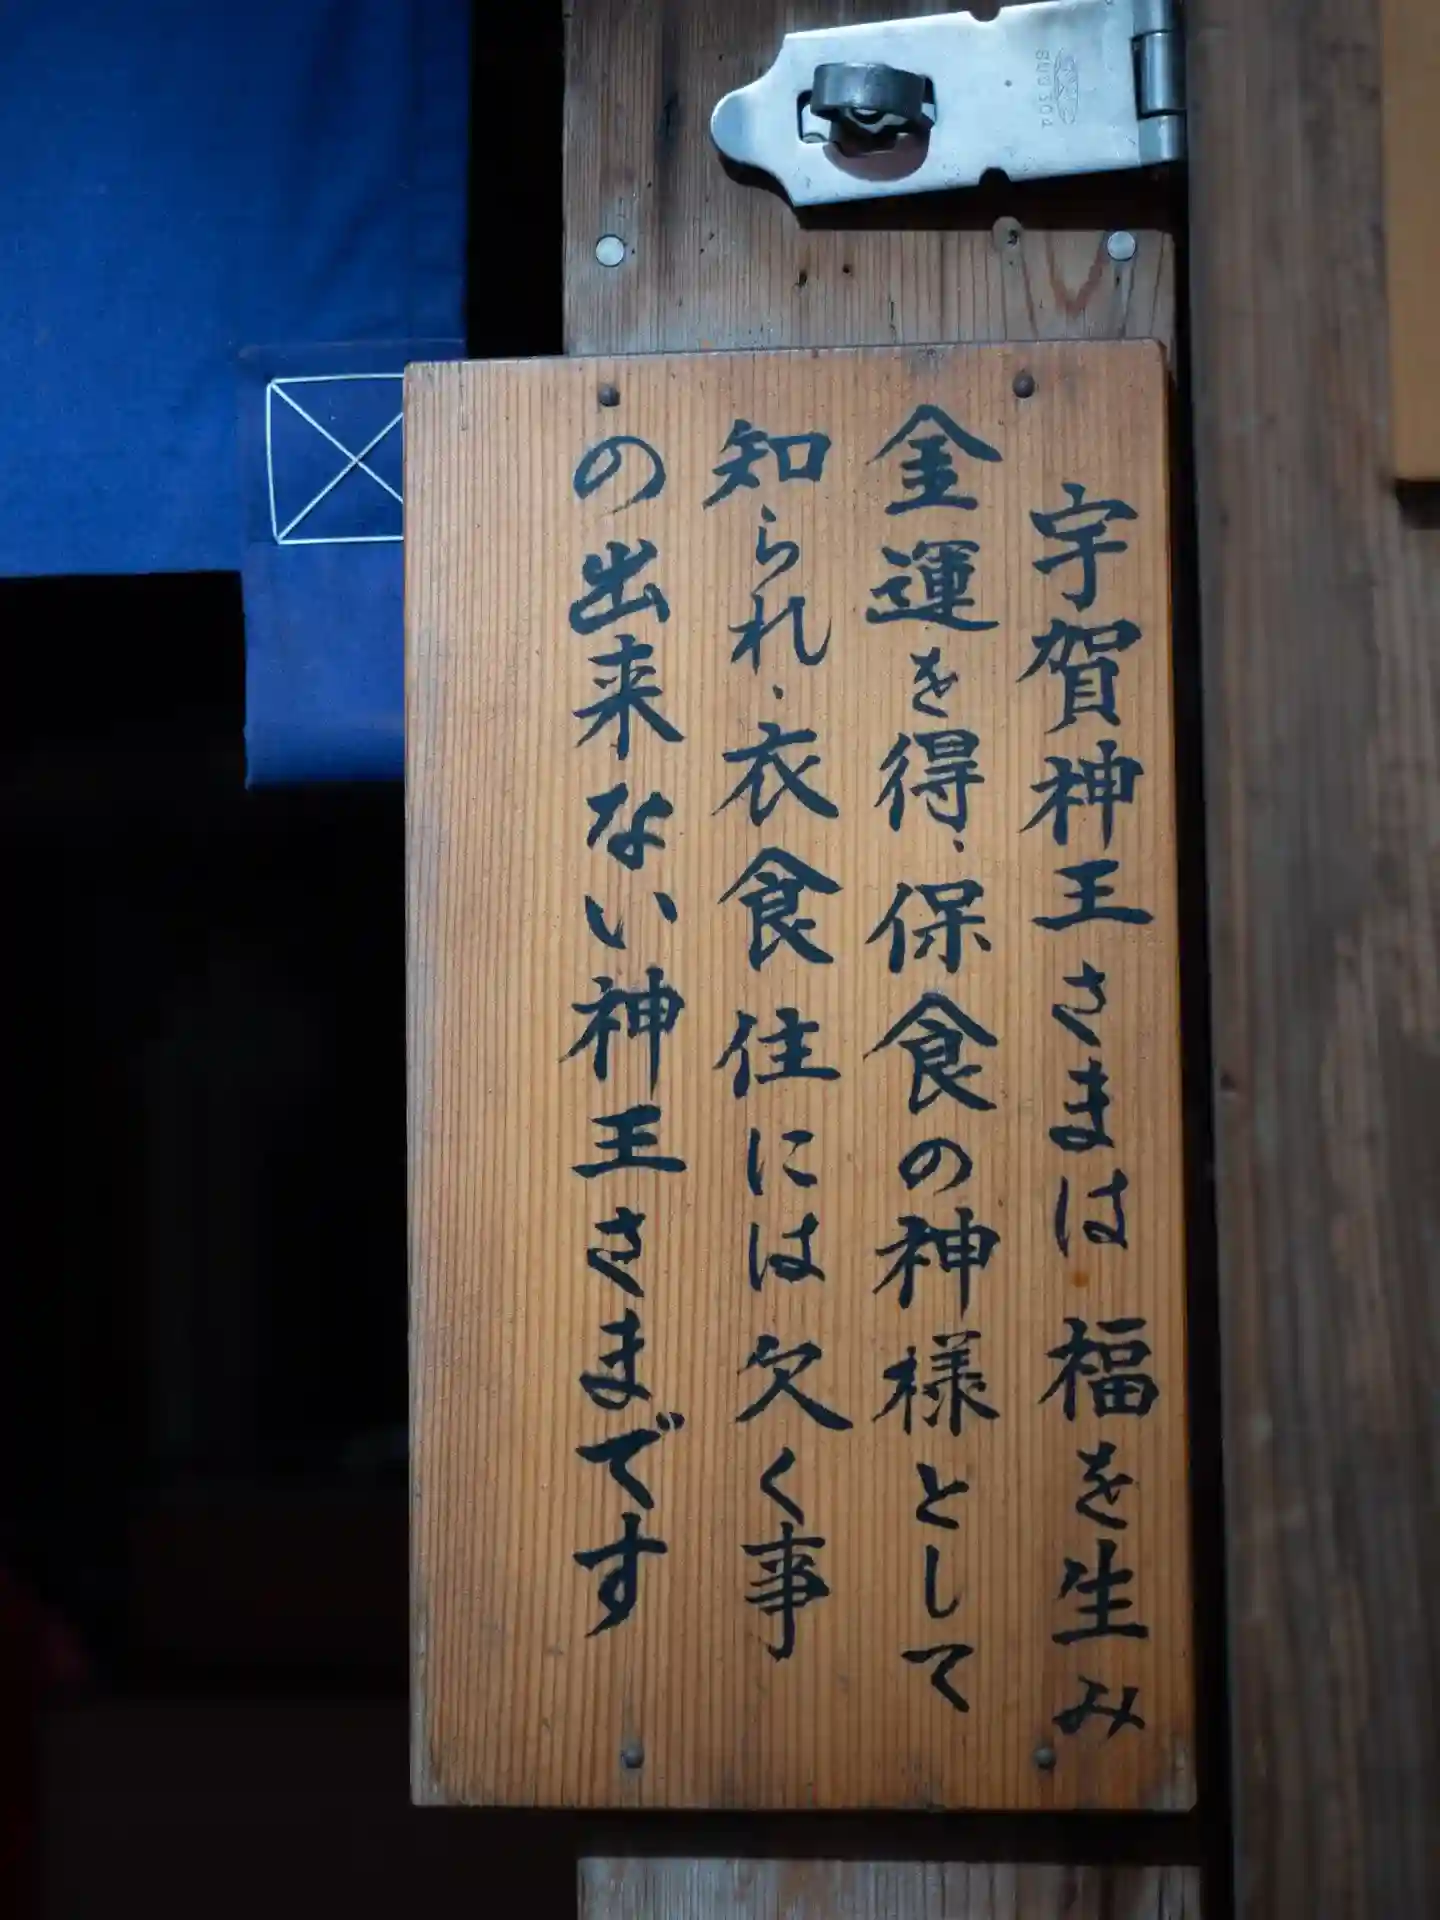 宇賀神王さまは福を生み
金運を得、保食の神様として
知られ、衣食住には欠く事
の出来ない神王さまです